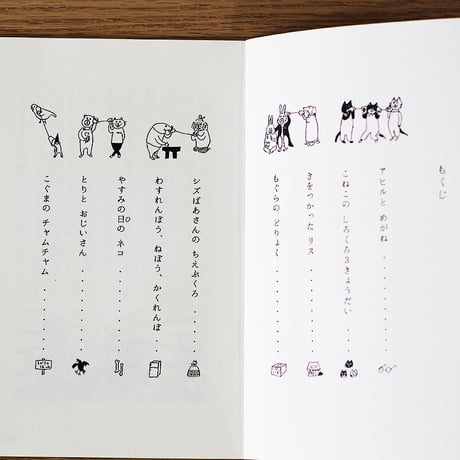 もくじ
アヒルと めがね ・・・・・・
こねこの しろくろ3きょうだい ・・・
きをつかった リス ・・・・・・・
もぐらの どりょく ・・・・・・・
シズばあさんの ちえぶくろ ・・・・
わすれんぼう、ねぼう、かくれんぼ ・・
やすみの日の ネコ ・・・・・・・
とりと おじいさん ・・・・・・・
こぐまの チャムチャム ・・・・・